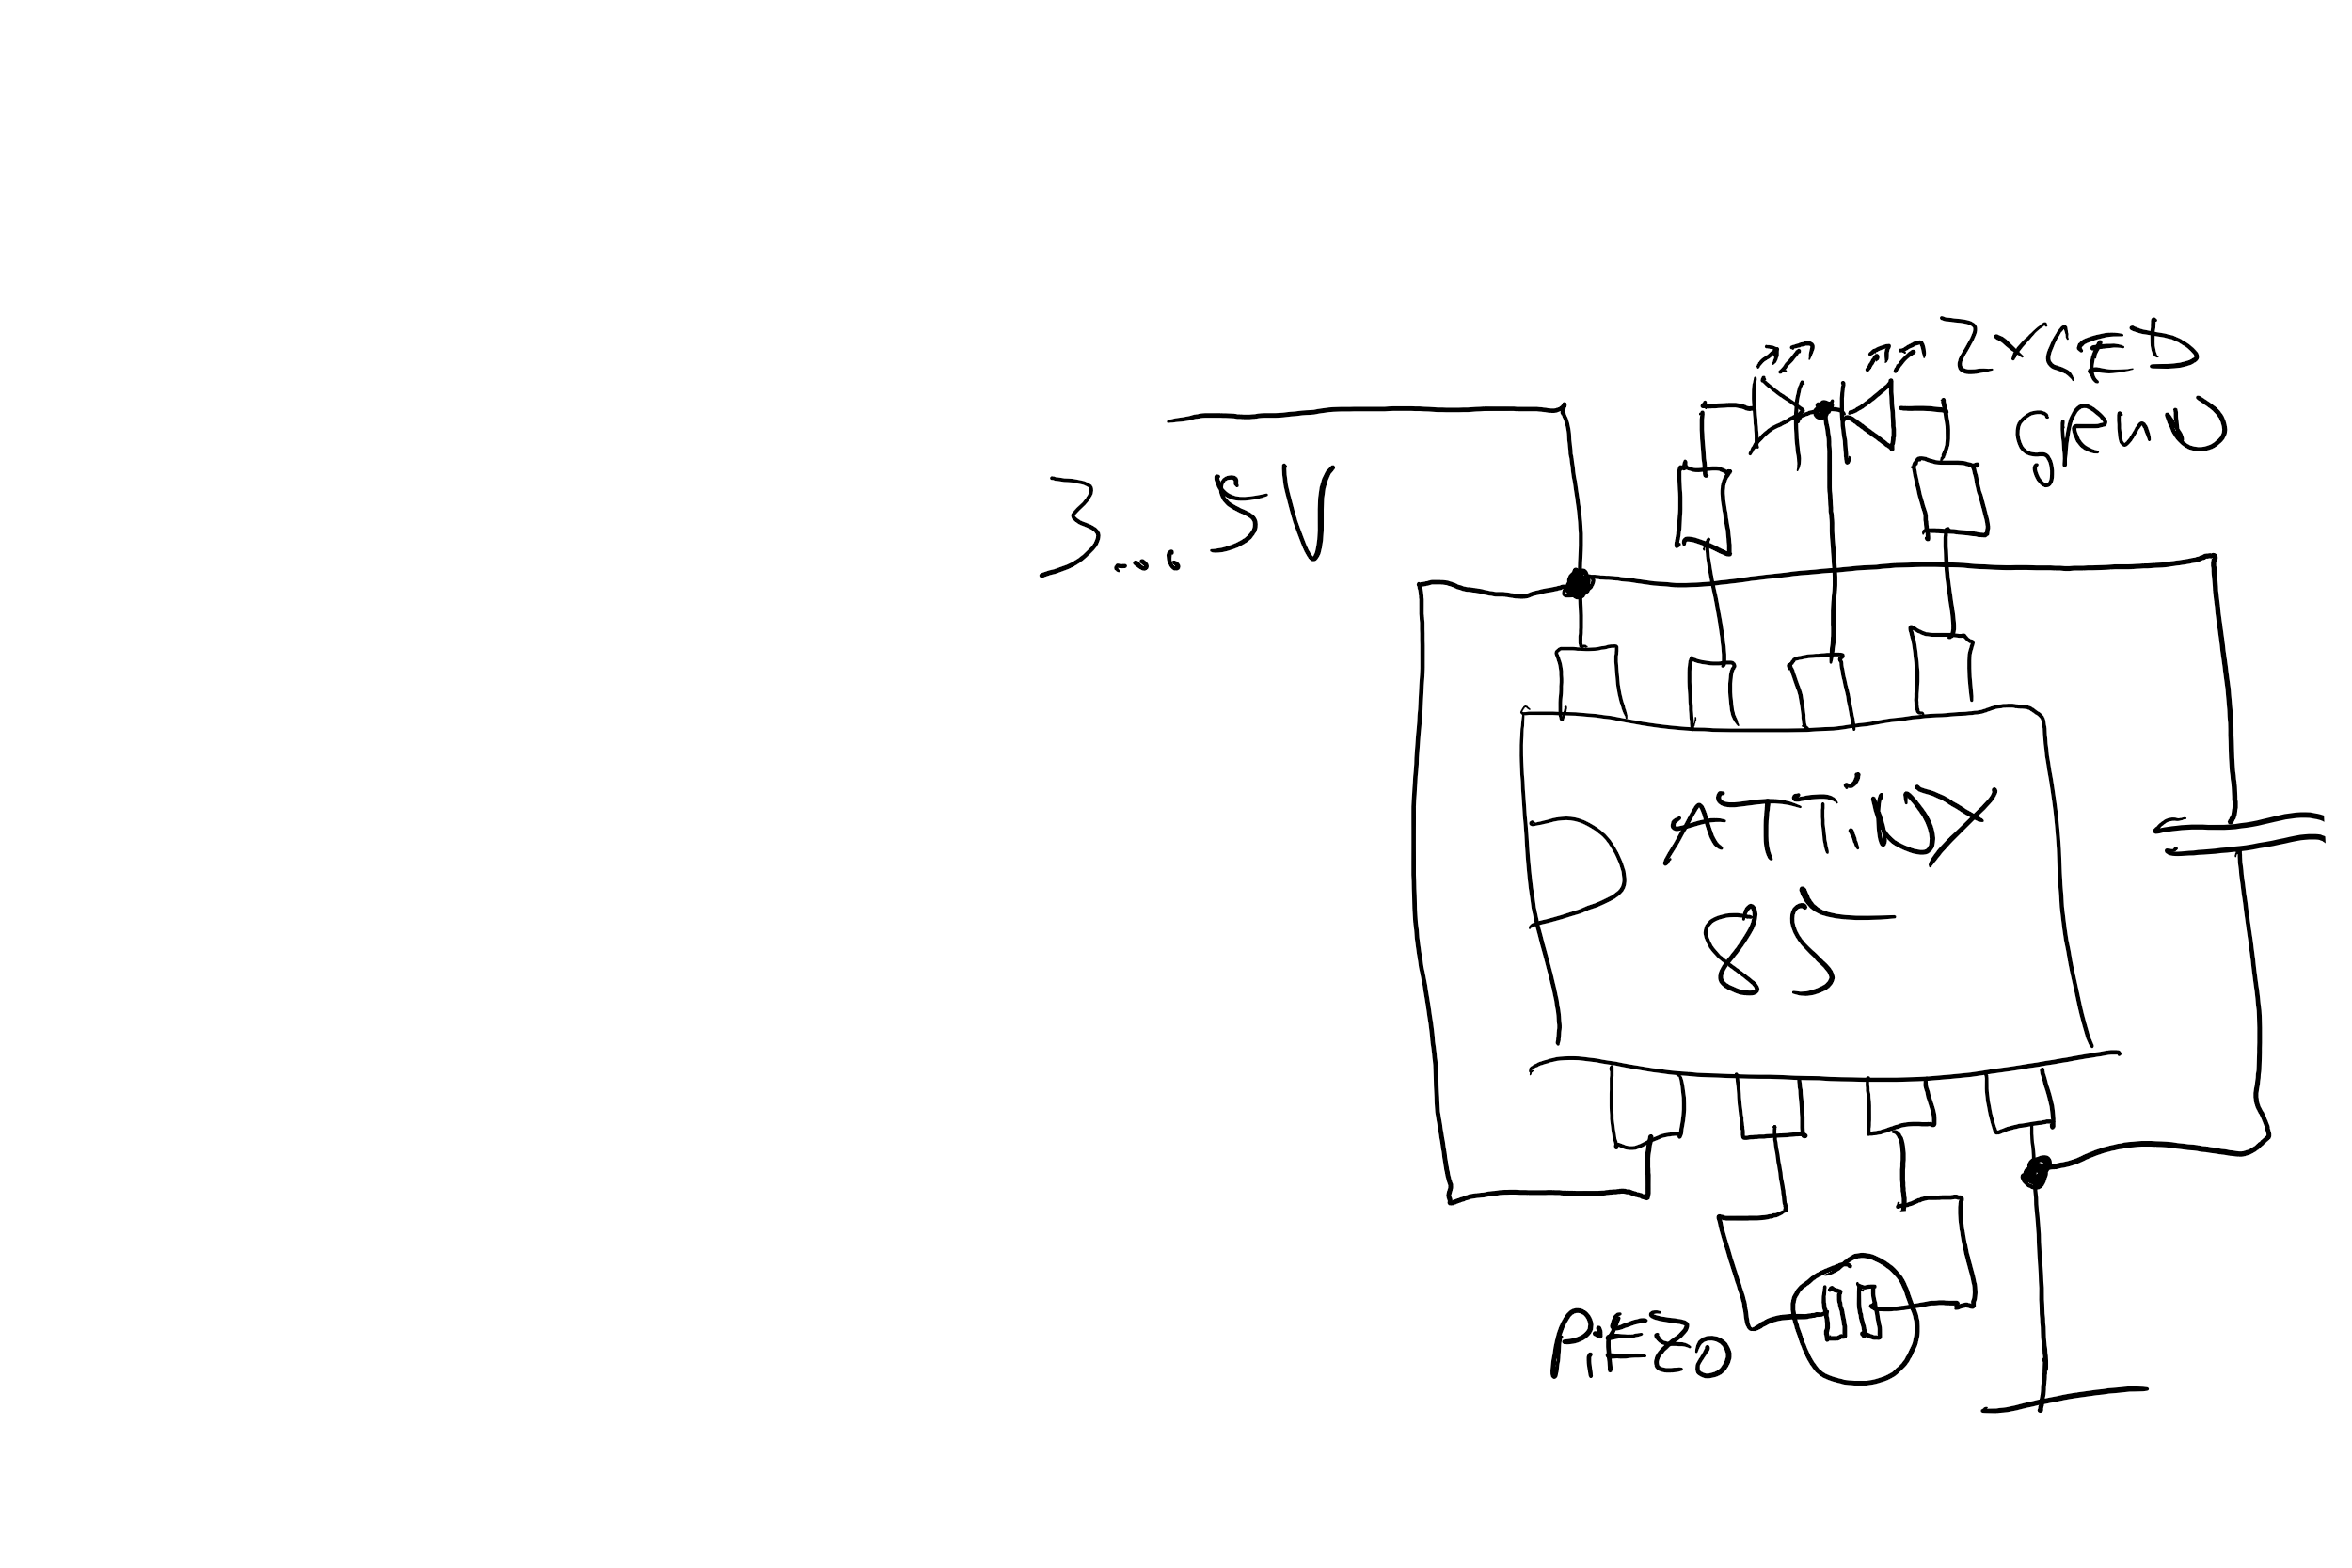 2xLED
GRÜN
3...5V
ATTiNY
85
PiEZO